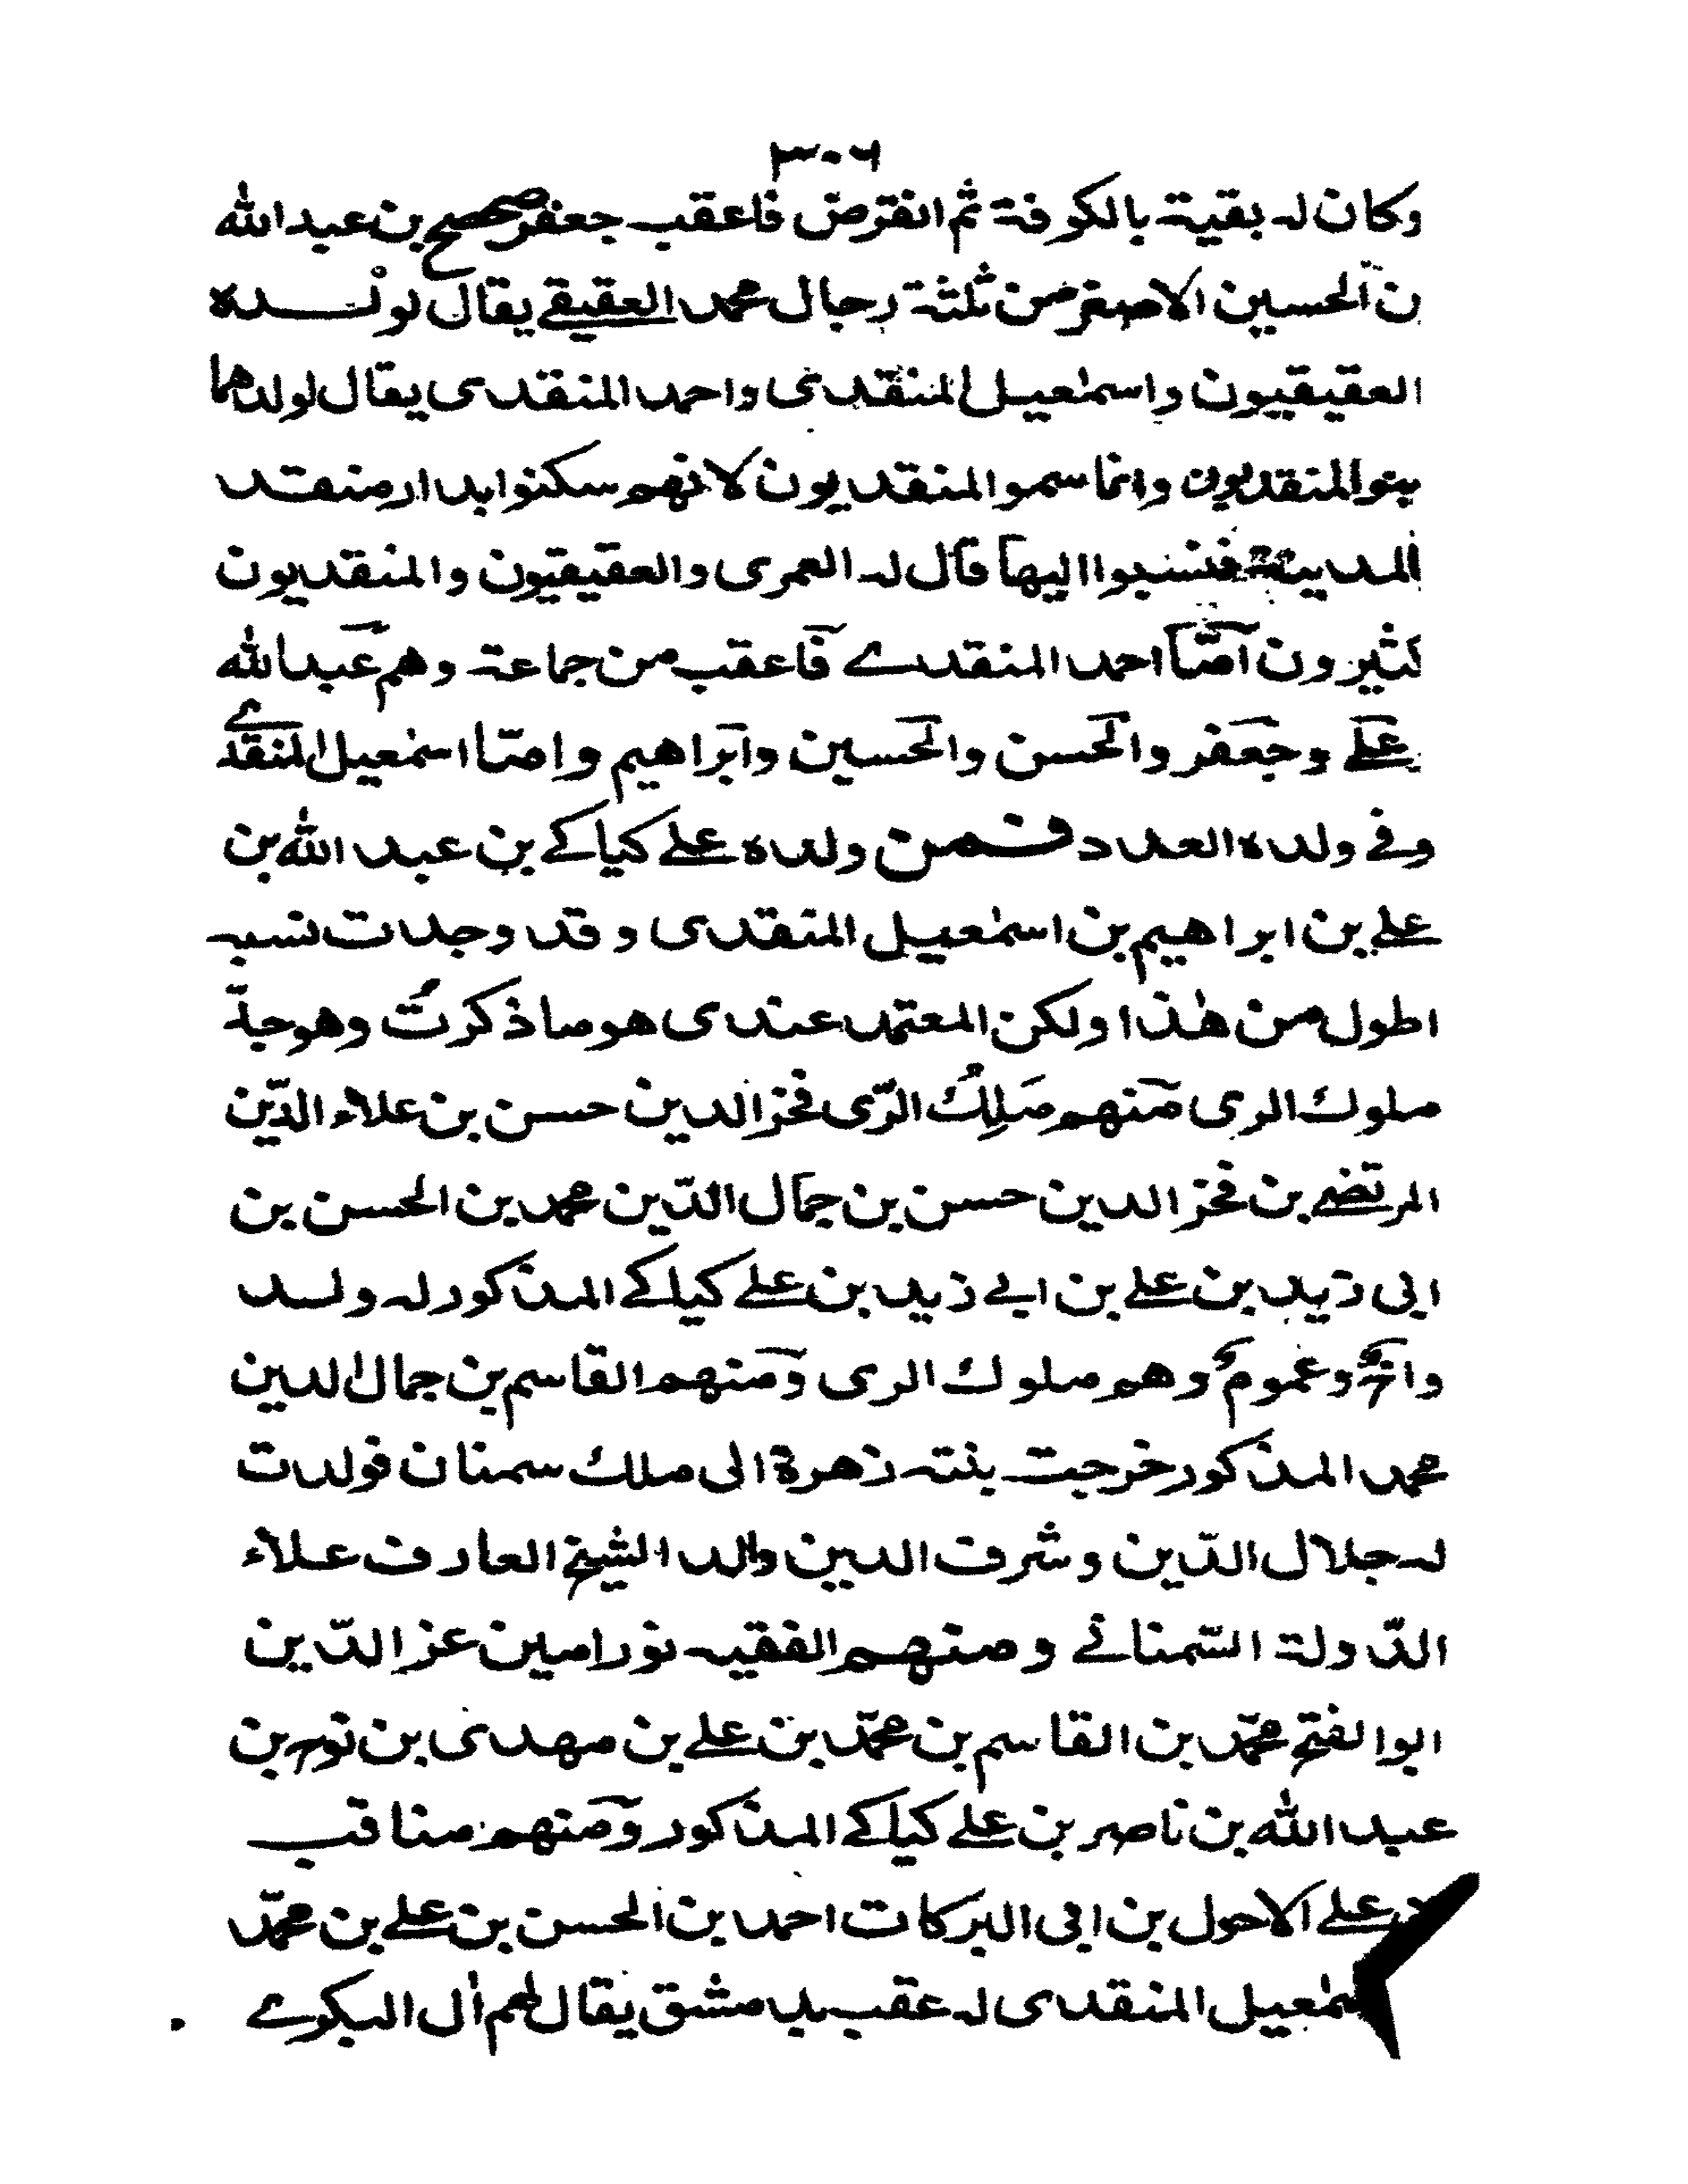 ٣٠٦
وكان له بقية بالكوفة ثم انقرض فاعقب جعفر صحصح بن عبد الله
ن الحسين الاصغر من ثلثة رجال محمد العقيقے يقال لولده
العقيقيون واسمٰعيل المنقدى واحمد المنقدى يقال لولدهما
بنو المنقديون وانما سموا المنقديون لانهم سكنوا بدار منقد
المدينة فنسبوا اليها قال له العمرى والعقيقيون والمنقديون
كثيرون امّا احمد المنقدے فاعقب من جماعة وهم عبد الله
علے وجعفر والحسن والحسين وابراهيم وامّا اسمٰعيل المنقدے
وفے ولده العدد فمن ولده علے كياكے بن عبد الله بن
علے بن ابراهيم بن اسمٰعيل المنقدى وقد وجدت نسبه
اطول من هٰذا ولكن المعتمد عندى هو ما ذكرتُ وهو جدّ
ملوك الرى منهم مَلِكُ الرّى فخر الدين حسن بن علاء الدّين
المرتضے بن فخر الدين حسن بن جمال الدّين محمد بن الحسن بن
ابى زيد بن علے بن ابے زيد بن علے كياكے المذكور له ولد
واخوة وعموم وهم ملوك الرى ومنهم القاسم بن جمال الدين
محمد المذكور خرجت بنته زهرة الى ملك سمنان فولدت
له جلال الدّين وشرف الدين والد الشيخ العارف علاء
الدّولة السّمنانے ومنهم الفقيه نورامين عز الدّين
ابو الفتح محمّد بن القاسم بن محمّد بن علے بن مهدى بن نوح بن
عبد الله بن ناصر بن علے كياكے المذكور ومنهم مناقب
بن علے الاحول بن ابى البركات احمد بن الحسن بن علے بن محمّد
سمٰعيل المنقدى له عقب بدمشق يقال لهم اٰل البكرے